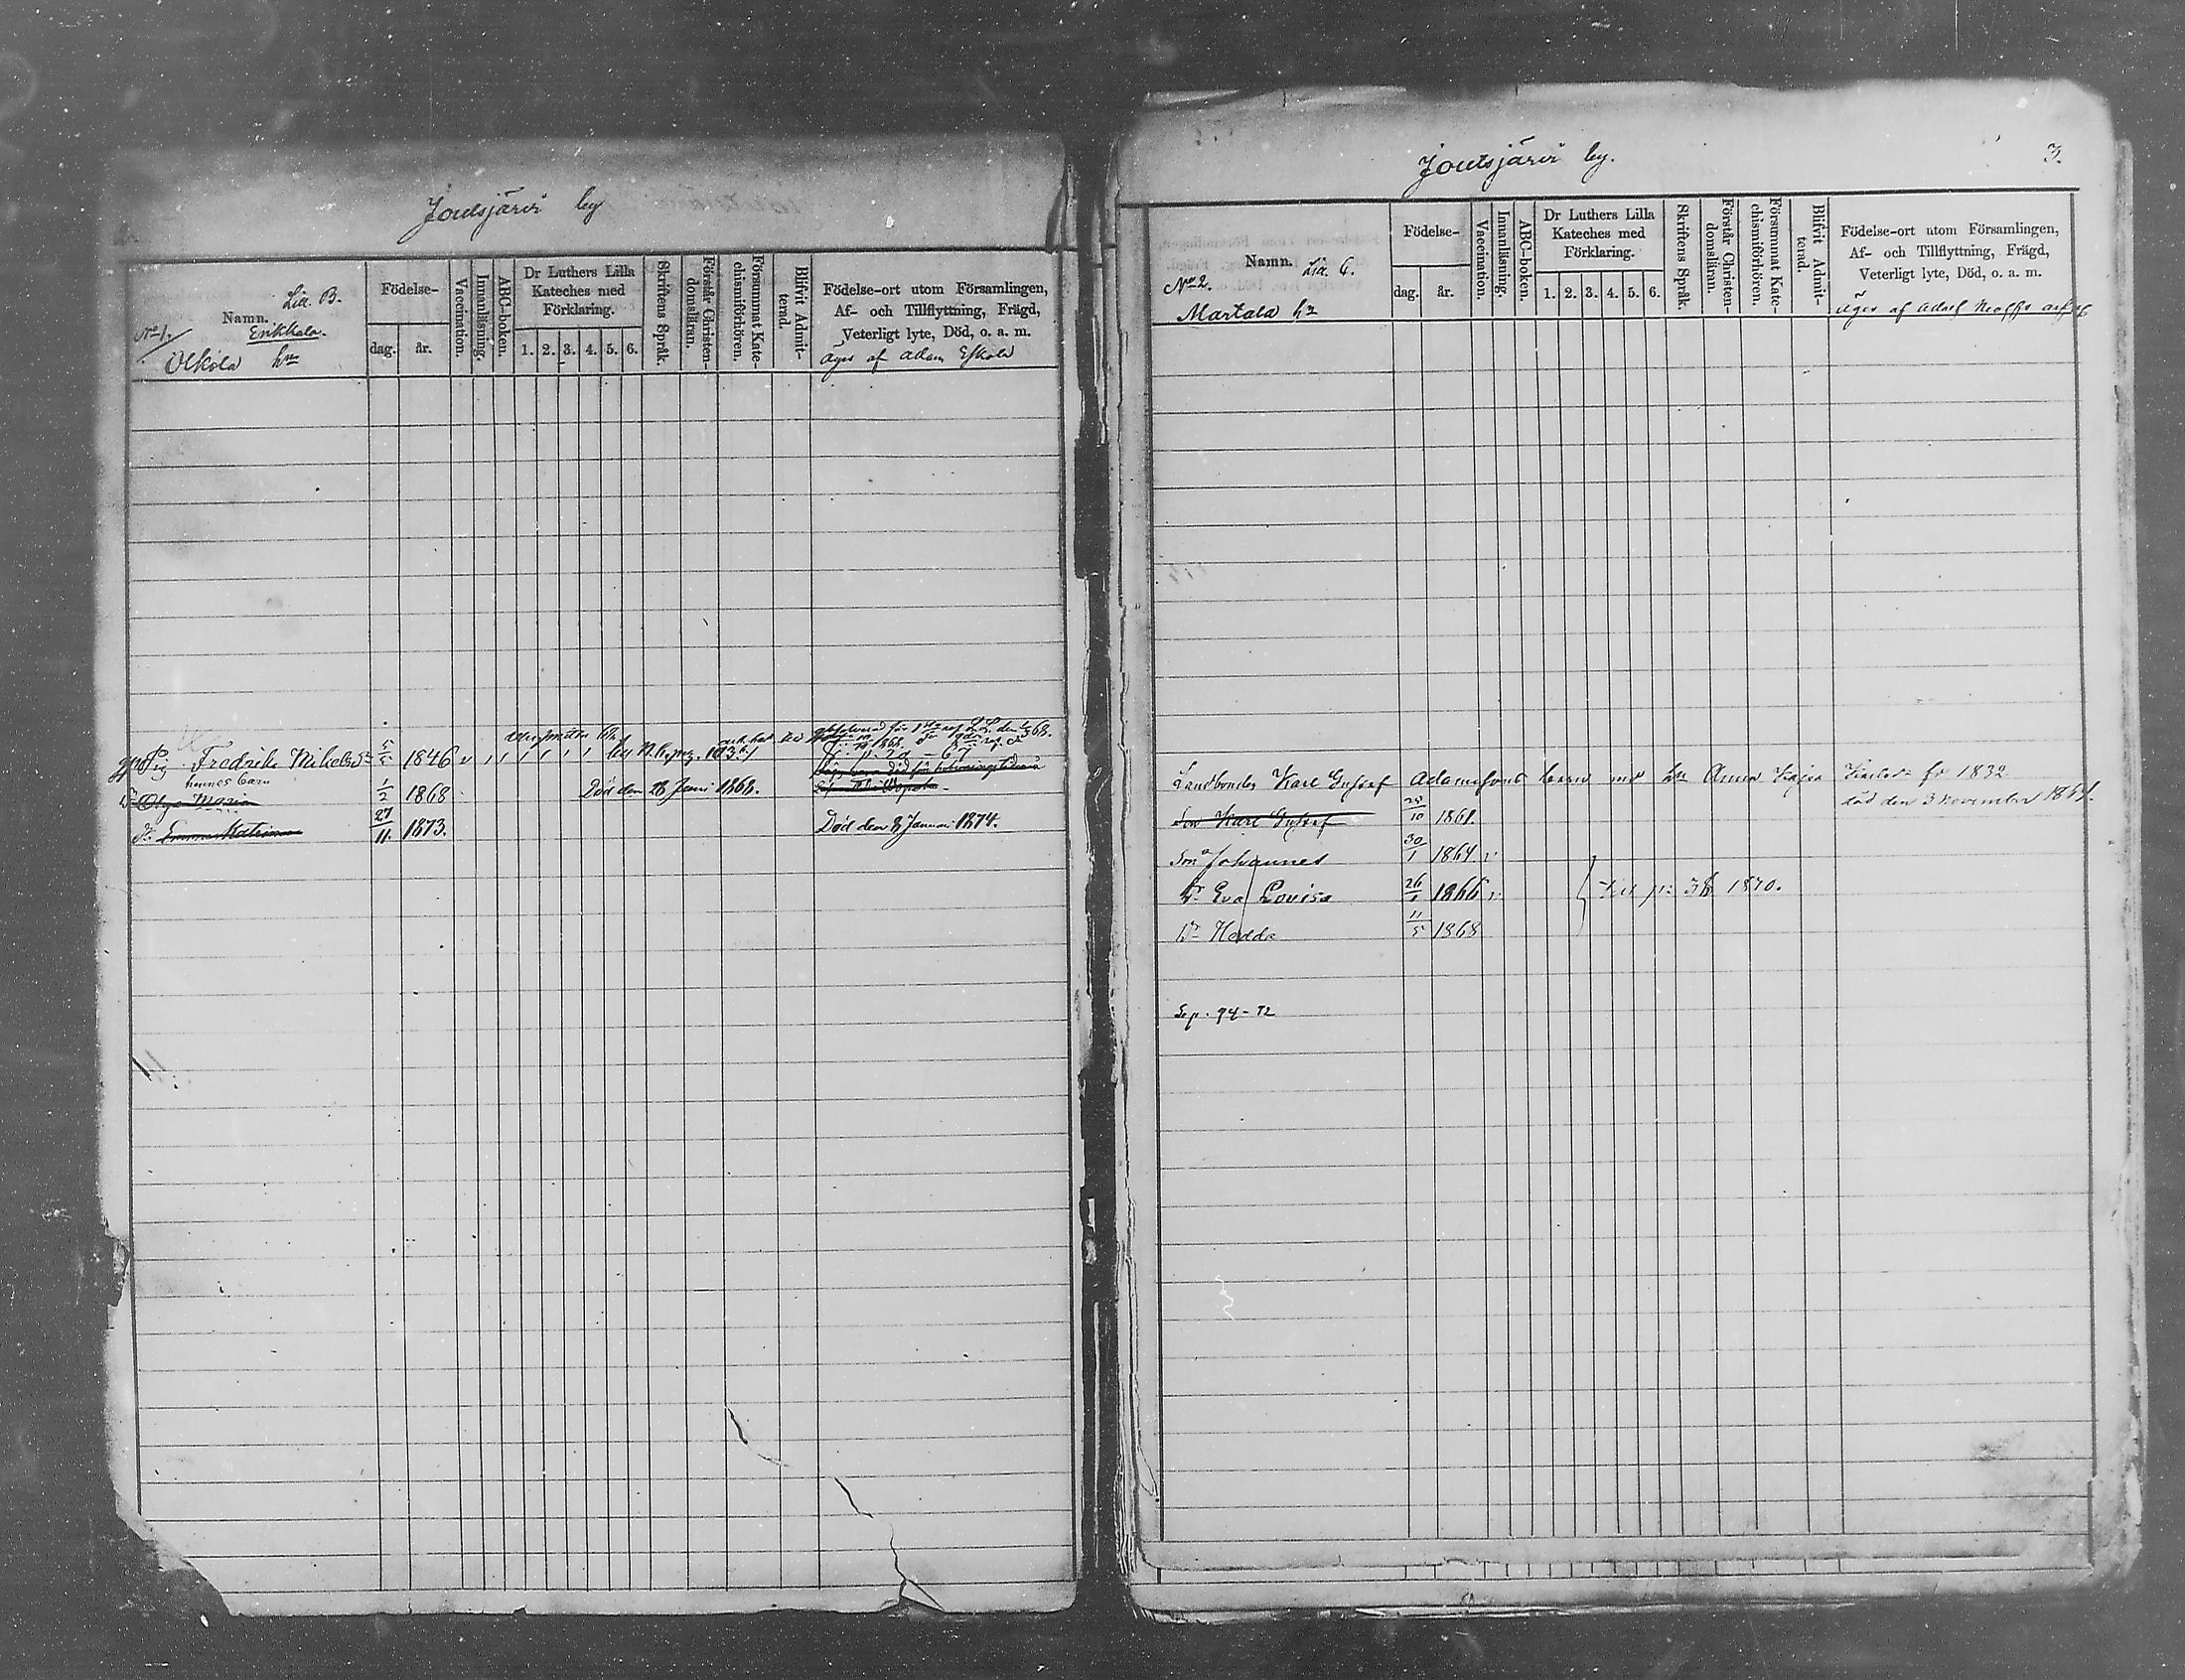 Joutsjärvi by
Namn. Litt. B.
No 1. Erikkala.
Olkola hn
Födelse-
dag. år.
Vaccination.
Innanläsning.
ABC-boken.
Dr Luthers Lilla
Kateches med
Förklaring.
1. 2. 3. 4. 5. 6.
Skriftens Språk.
Förstår Christen-
domsläran.
Försummat Kate-
chismiförhören.
Blifvit Admit-
terad.
Födelse-ort utom Församlingen,
Af- och Tillflyttning, Frägd,
Veterligt lyte, Död, o. a. m.
Äges af Adam Eskola
Pig. Fredrik Mikelsdr 5/5 1846
hennes barn
Dr Olga Maria 1/2 1868 Död den 28 Juni 1868.
Dr Emma Katrina 27/11 1873. Död den 8 Januari 1874.
Joutsjärvi by.
3.
Namn. Litt. C.
No 2.
Martala hn
Födelse-
dag. år.
Vaccination.
Innanläsning.
ABC-boken.
Dr Luthers Lilla
Kateches med
Förklaring.
1. 2. 3. 4. 5. 6.
Skriftens Språk.
Förstår Christen-
domsläran.
Försummat Kate-
chismiförhören.
Blifvit Admit-
terad.
Födelse-ort utom Församlingen,
Af- och Tillflyttning, Frägd,
Veterligt lyte, Död, o. a. m.
Äges af Adolf
Landbonden Karl Gustaf Adamssons barn med hu Anna Kajsa fd 1832
död den 3 November 1869.
Son Karl Gustaf 25/10 1861.
Son Johannes 30/1 1864
Dr Eva Lovisa 26/1 1866 Till p: 38 1870.
Dr Hedda 11/5 1868
Sep. 94-72